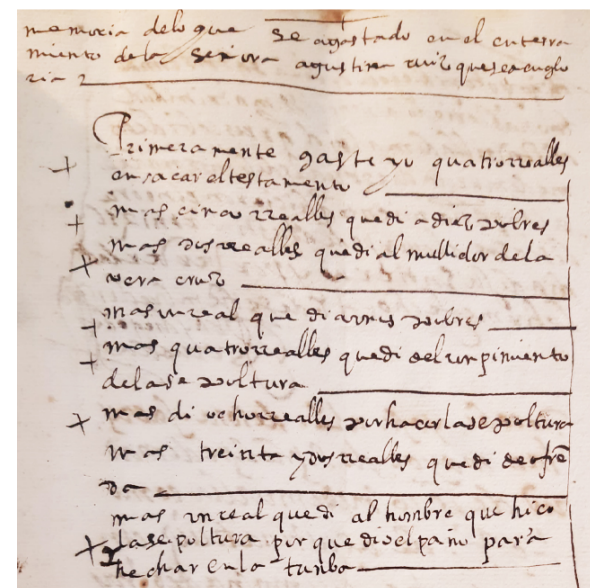 memoria delo que se agastado en el enterra
miento de la señora agustina ruiz que sea englo
ria
Primeramente gaste yo quatrorrealles
ensacar el testamento
mas cinco rrealles que di a diez pobres
mas dos rrealles que di al mullidor de la
vera cruz
mas un real que di a unos pobres
mas quatrorrealles que di del ronpimiento
de lase poltura
mas di ochorrealles por hacer la se poltura
mas treinta y dos rrealles que di de ofren
da
mas un real que di al hombre que hico
la se poltura por que dio el paño para
hechar en la tunba